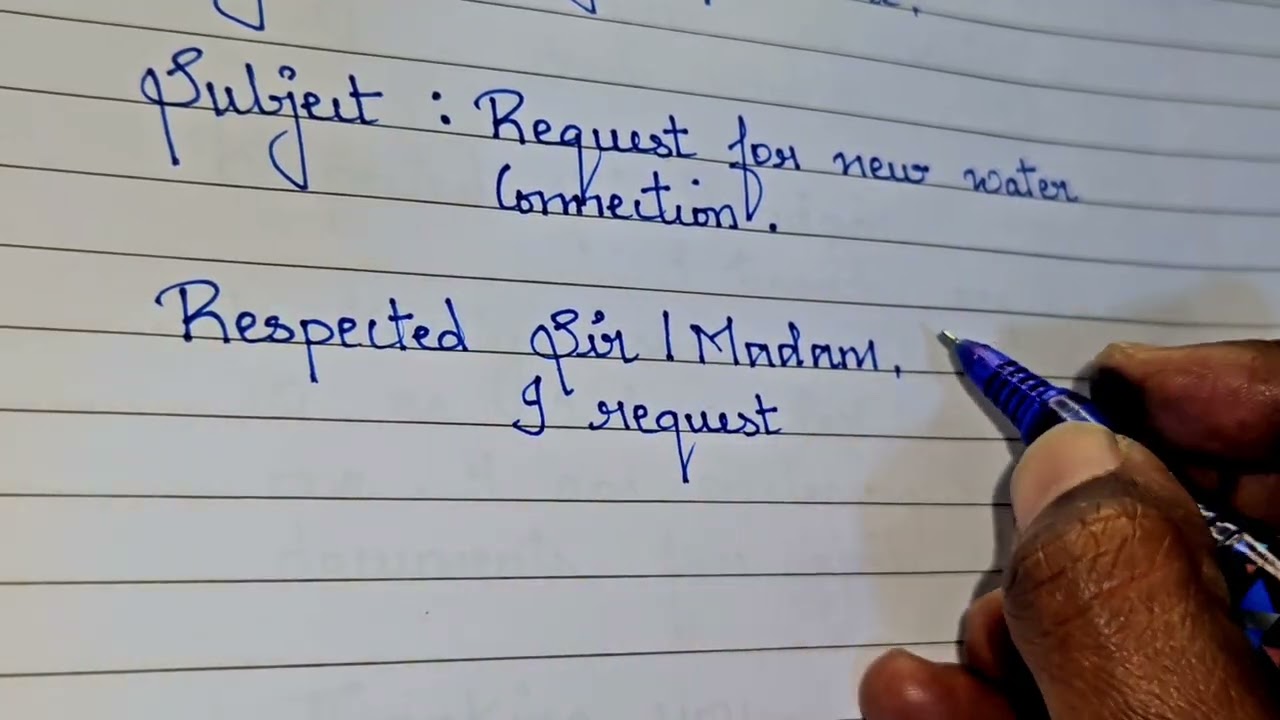 Subject : Request for new water
Connection.
Respected Sir / Madam,
I request